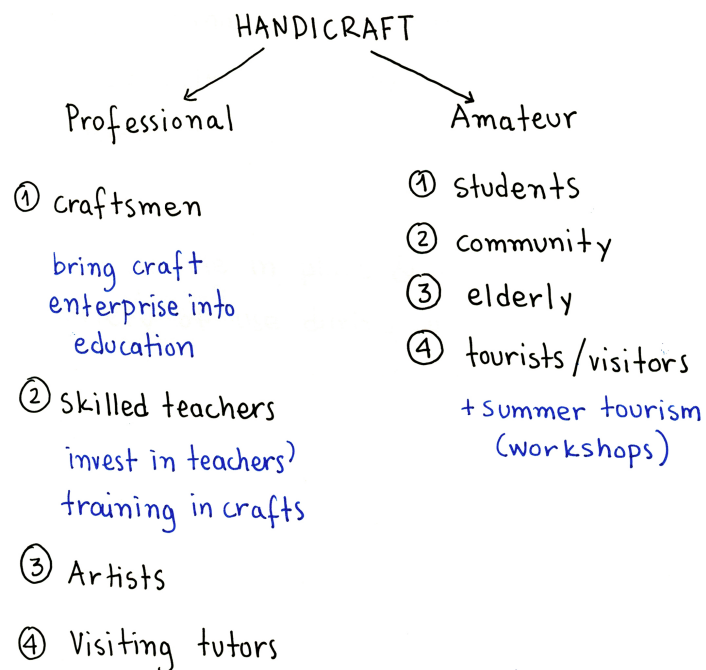 HANDICRAFT
Professional
① craftsmen
bring craft
enterprise into
education
② skilled teachers
invest in teachers'
training in crafts
③ Artists
④ Visiting tutors
Amateur
① students
② community
③ elderly
④ tourists/visitors
+ summer tourism
(workshops)